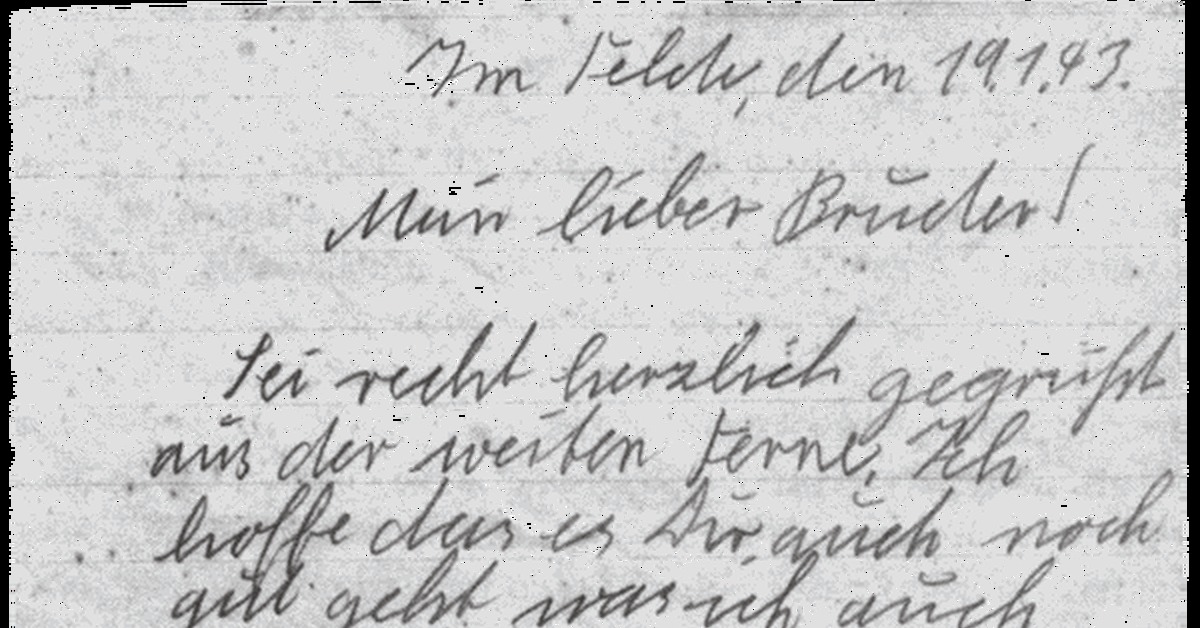 Im Felde, den 19.1.43.
Mein lieber Bruder!
Sei recht herzlich gegrüßt
aus der weiten Ferne. Ich
hoffe das es Dir auch noch
gut geht was ich auch